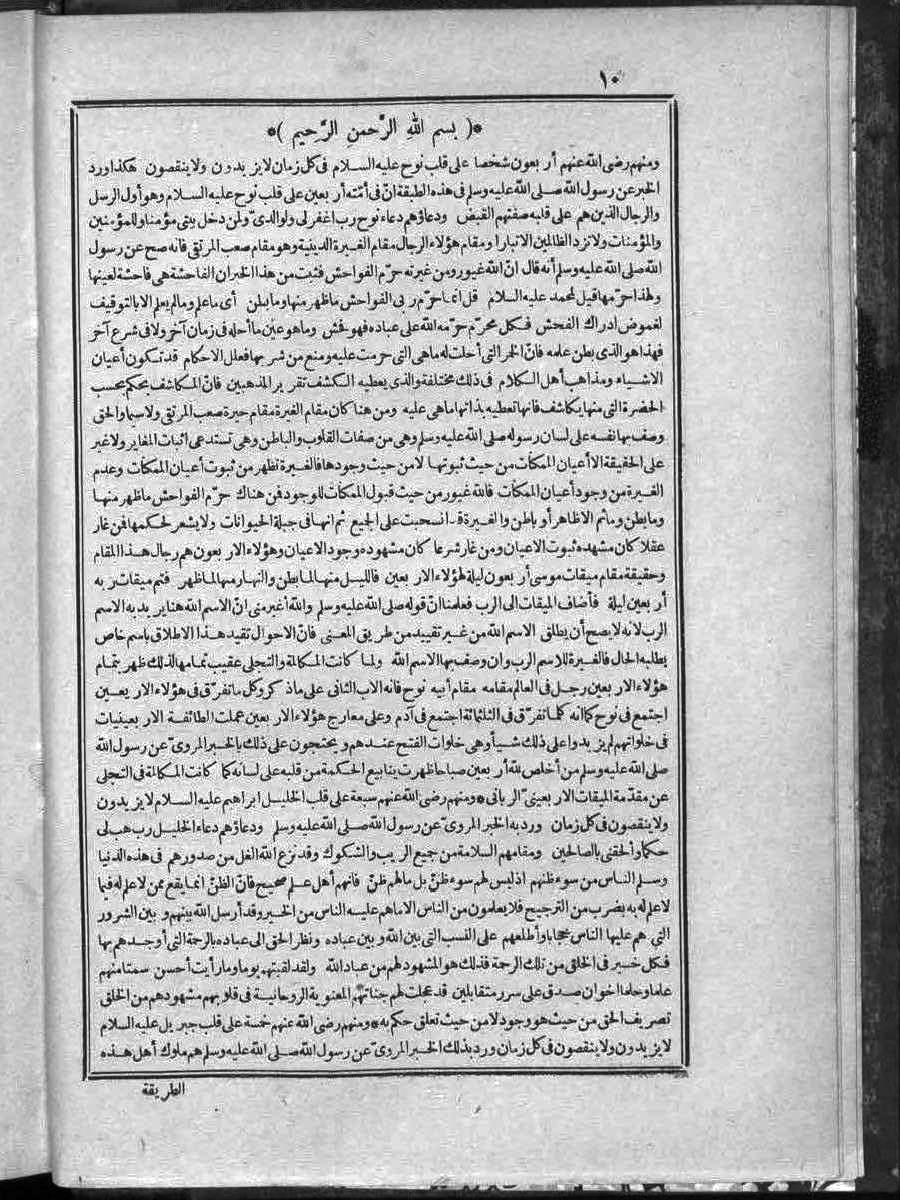 ١٠
*( بسم الله الرَّحمن الرَّحيم )*
ومنهم رضى الله عنهم أربعون شخصا على قلب نوح عليه السلام فى كل زمان لا يزيدون ولا ينقصون هكذا ورد
الخبر عن رسول الله صلى الله عليه وسلم فى هذه الطبقة انّ فى أمّته أربعين على قلب نوح عليه السلام وهو أول الرسل
والرجال الذين هم على قلبه صفتهم القبض ودعاؤهم دعاء نوح رب اغفر لى ولوالدىّ ولمن دخل بيتى مؤمنا وللمؤمنين
والمؤمنات ولا تزد الظالمين الا تبارا ومقام هؤلاء الرجال مقام الغيرة الدينية وهو مقام صعب المرتقى فانه صح عن رسول
الله صلى الله عليه وسلم أنه قال انّ الله غيور ومن غيرته حرّم الفواحش فثبت من هذا الخبر ان الفاحشة هى فاحشة لعينها
ولهذا حرّمها قيل لمحمد عليه السلام قل انما حرّم ربى الفواحش ما ظهر منها وما بطن أى ما علم وما لم يعلم الا بالتوقيف
لغموض ادراك الفحش فكل محرّم حرّمه الله على عباده فهو فحش وما هو عين ما أحله فى زمان آخر ولا فى شرع آخر
فهذا هو الذى بطن علمه فانّ الخمر التى أحلت له ما هى التى حرمت عليه ومنع من شربها فعلل الاحكام قد تكون أعيان
الاشياء ومذاهب أهل الكلام فى ذلك مختلفة والذى يعطيه الكشف تقرير المذهبين فانّ المكاشف يحكم بحسب
الحضرة التى منها يكاشف فانها تعطيه بذاتها ما هى عليه ومن هنا كان مقام الغيرة مقام حيرة صعب المرتقى ولا سيما والحق
وصف بها نفسه على لسان رسوله صلى الله عليه وسلم وهى من صفات القلوب والباطن وهى تستدعى اثبات المغاير ولا غير
على الحقيقة الا أعيان الممكنات من حيث ثبوتها لا من حيث وجودها فالغيرة تظهر من ثبوت أعيان الممكنات وعدم
الغيرة من وجود أعيان الممكنات فالله غيور من حيث قبول الممكنات للوجود فمن هناك حرّم الفواحش ما ظهر منها
وما بطن وما ثم الا ظاهر أو باطن والغيرة قد انسحبت على الجميع ثم انها فى جبلة الحيوانات ولا يشعر لحكمها فمن غار
عقلا كان مشهده ثبوت الاعيان ومن غار شرعا كان مشهوده وجود الاعيان وهؤلاء الاربعون هم رجال هذا المقام
وحقيقة مقام ميقات موسى أربعون ليلة لهؤلاء الاربعين فالليل منها لما بطن والنهار منها لما ظهر فتم ميقات ربه
أربعين ليلة فأضاف الميقات الى الرب فعلمنا انّ قوله صلى الله عليه وسلم والله أغير منى انّ الاسم الله هنا يريد به الاسم
الرب لانه لا يصح أن يطلق الاسم الله من غير تقييد من طريق المعنى فانّ الاحوال تقيد هذا الاطلاق باسم خاص
يطلبه الحال فالغيرة للاسم الرب وان وصف بها الاسم الله ولما كانت المكالمة والتجلى عقيب تمامها لذلك ظهر بتمام
هؤلاء الاربعين رجل فى العالم مقامه مقام أبيه نوح فانه الاب الثانى على ما ذكر وكل ما تفرّق فى هؤلاء الاربعين
اجتمع فى نوح كما انه كلما تفرّق فى الثلثمائة اجتمع فى آدم وعلى معارج هؤلاء الاربعين عملت الطائفة الاربعينيات
فى خلواتهم لم يزيدوا على ذلك شيأ وهى خلوات الفتح عندهم ويحتجون على ذلك بالخبر المروىّ عن رسول الله
صلى الله عليه وسلم من أخلص لله أربعين صباحا ظهرت ينابيع الحكمة من قلبه على لسانه كما كانت المكالمة فى التجلى
عن مقدّمة الميقات الاربعينىّ الربانى * ومنهم رضى الله عنهم سبعة على قلب الخليل ابراهيم عليه السلام لا يزيدون
ولا ينقصون فى كل زمان ورد به الخبر المروىّ عن رسول الله صلى الله عليه وسلم ودعاؤهم دعاء الخليل رب هب لى
حكما وألحقنى بالصالحين ومقامهم السلامة من جميع الريب والشكوك وقد نزع الله الغل من صدورهم فى هذه الدنيا
وسلم الناس من سوء ظنهم اذ ليس لهم سوء ظنّ بل ما لهم ظنّ فانهم أهل علم صحيح فانّ الظنّ انما يقع ممن لا علم له فيما
لا علم له به بضرب من الترجيح فلا يعلمون من الناس الا ما هم عليه الناس من الخير وقد أرسل الله بينهم وبين الشرور
التى هم عليها الناس حجابا وأطلعهم على النسب التى بين الله وبين عباده ونظر الحق الى عباده بالرحمة التى أوجدهم بها
فكل خير فى الخلق من تلك الرحمة فذلك هو المشهود لهم من عباد الله ولقد لقيتهم يوما وما رأيت أحسن سمتا منهم
علما وحلما اخوان صدق على سرر متقابلين قد عجلت لهم جناتهم المعنوية الروحانية فى قلوبهم مشهودهم من الخلق
تصريف الحق من حيث هو وجود لا من حيث تعلق حكم به * ومنهم رضى الله عنهم خمسة على قلب جبريل عليه السلام
لا يزيدون ولا ينقصون فى كل زمان ورد بذلك الخبر المروىّ عن رسول الله صلى الله عليه وسلم هم ملوك أهل هذه
الطريقة